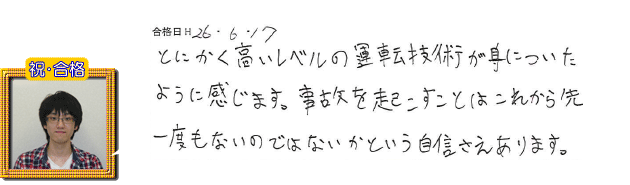 合格日 H 26・6・17
とにかく高いレベルの運転技術が身についた
祝・合格
ように感じます。事故を起こすことはこれから先
一度もないのではないかという自信さえあります。